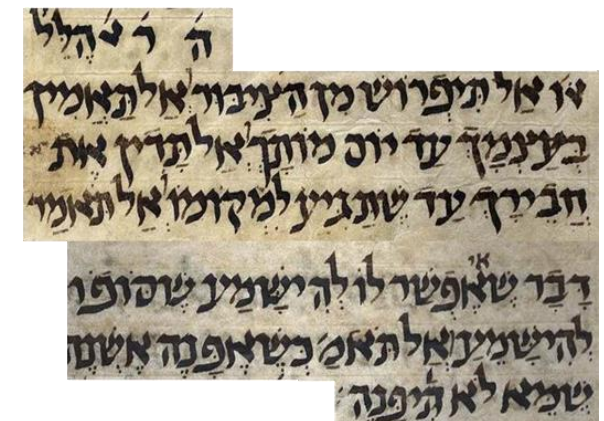 ה ר הלל
או אל תיפרוש מן הציבור אל תאמין
בעצמך עד יום מותך אל תדין את
חבירך עד שתגיע למקומו אל תאמר
אי
דבר שאפשר לו להישמע שסופו
להישמע אל תאמ' כשאפנה אשנה
שמא לא תיפנה